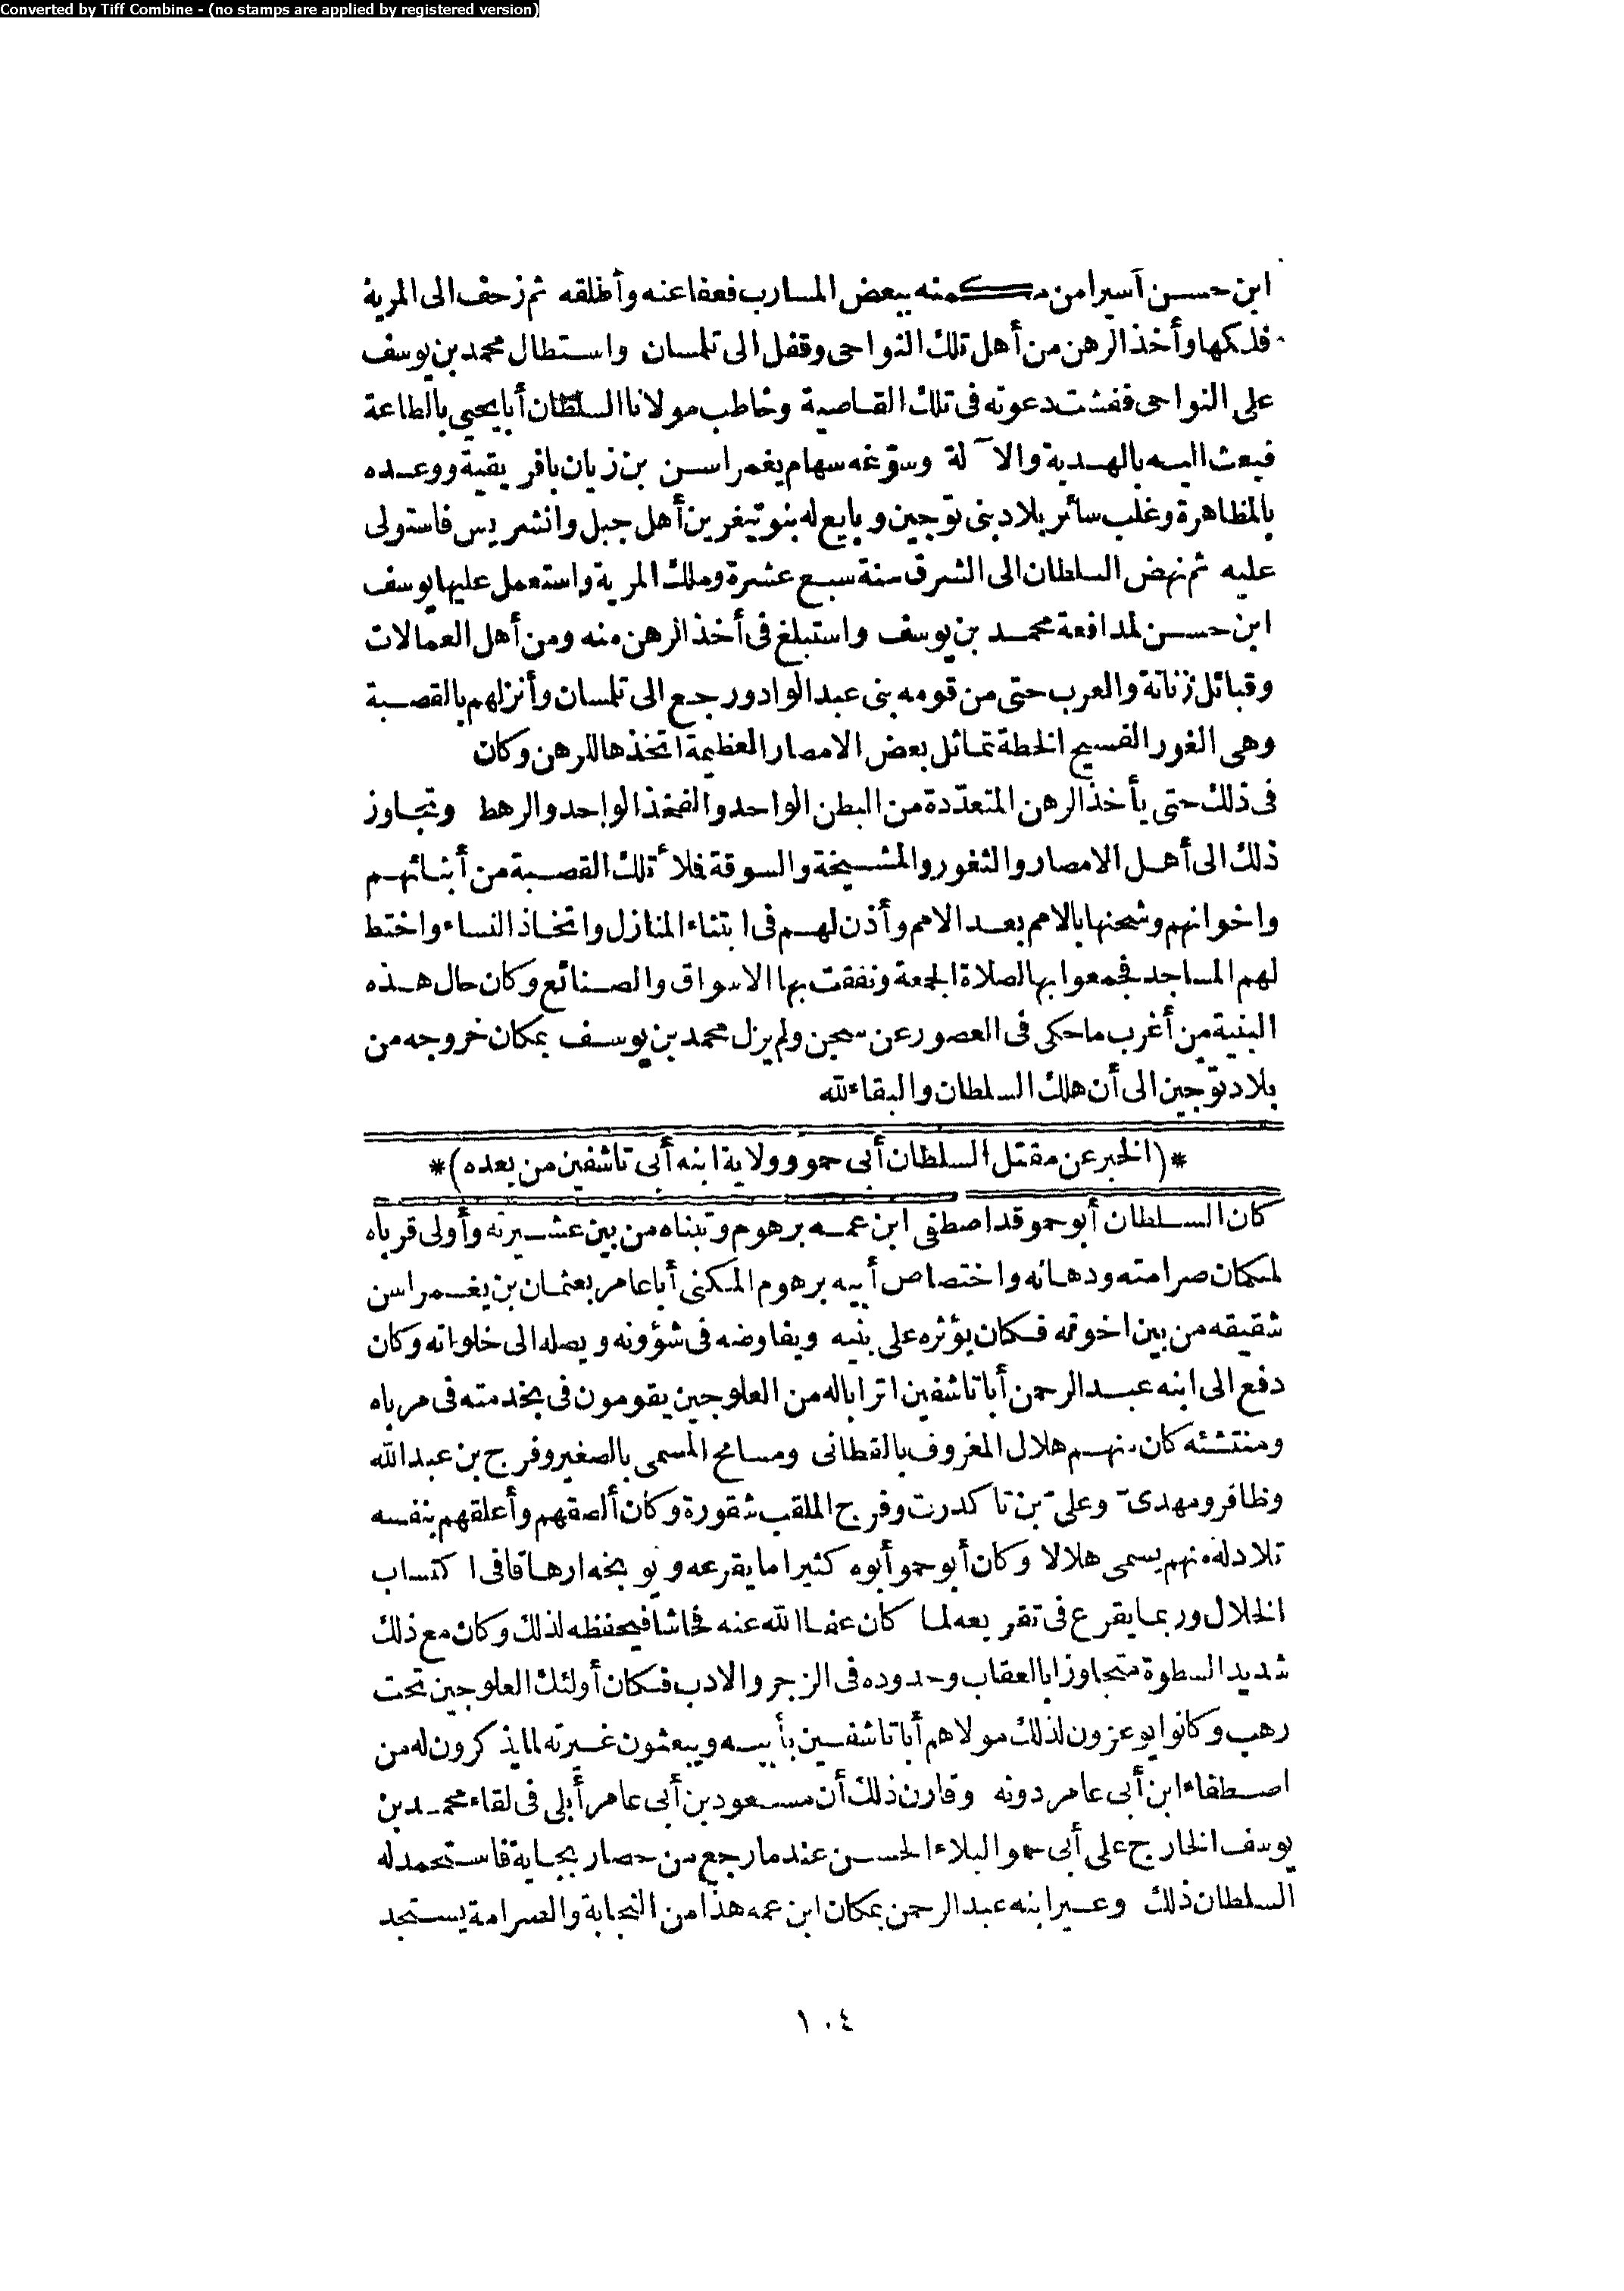 Converted by Tiff Combine - (no stamps are applied by registered version)
ابن حسن أسيرا من مكمنه ببعض المسارب فعفا عنه وأطلقه ثم زحف الى المرية
فلكها وأخذ الرهن من أهل تلك النواحى وقفل الى تلمسان واستطال محمد بن يوسف
على النواحى ففشت دعوته فى تلك القاصية وخاطب مولانا السلطان أبا يحيى بالطاعة
فبعث اليه بالهدية والآلة وسوّغه سهام يغمراسن بن زيان بافريقية ووعده
بالمظاهرة وغلب سائر بلاد بنى توجين وبايع له بنو تيغرين أهل جبل وانشريس فاستولى
عليه ثم نهض السلطان الى الشرق سنة سبع عشرة وملك المرية واستعمل عليها يوسف
ابن حسن لمدافعة محمد بن يوسف واستبلغ فى أخذ الرهن منه ومن أهل العمالات
وقبائل زناتة والعرب حتى من قومه بنى عبد الواد ورجع الى تلمسان وأنزلهم بالقصبة
وهى الغور الفسيح الخطة تماثل بعض الامصار العظيمة اتخذها للرهن وكان
فى ذلك حتى يأخذ الرهن المتعدّدة من البطن الواحد والفخذ الواحد والرهط وتجاوز
ذلك الى أهل الامصار والثغور والمشيخة والسوقة فلأ تلك القصبة من أبنائهم
واخوانهم وشحنها بالامم بعد الامم وأذن لهم فى ابتناء المنازل واتخاذ النساء واختط
لهم المساجد فجمعوا بها لصلاة الجمعة ونفقت بها الاسواق والصنائع وكان حال هذه
البنية من أغرب ما حكى فى العصور عن سجن ولم يزل محمد بن يوسف بمكان خروجه من
بلاد توّجين الى أن هلك السلطان والبقاء لله
*(الخبر عن مقتل السلطان أبى حمو وولاية ابنه أبى تاشفين من بعده)*
كان السلطان أبو حمو قد اصطفى ابن عمه برهوم وتبناه من بين عشيرته وأولى قرباه
لمكان صرامته ودهائه واختصاص أبيه برهوم المكنى أبا عامر بعثمان بن يغمراسن
شقيقه من بين اخوته فكان يؤثره على بنيه ويفاوضه فى شؤونه ويصله الى خلواته وكان
دفع الى ابنه عبد الرحمن أبا تاشفين اترابا له من العلوجين يقومون فى بخدمته فى مرباه
ومنتشئه كان منهم هلال المعروف بالقطانى ومسامح المسمى بالصغير وفرج بن عبد الله
وظافر ومهدىّ وعلىّ بن تاكدرت وفرج الملقب شقورة وكان ألصقهم وأعلقهم بنفسه
تلاد له منهم يسمى هلالا وكان أبو حمو أبوه كثيرا ما يقرعه ويوبخه ارهاقا فى اكتساب
الخلال وربما يقرع فى تقريعه لما كان عفا الله عنه فحاشا فيحفظه لذلك وكان مع ذلك
شديد السطوة متجاوزا بالعقاب وحدوده فى الزجر والادب فكان أولئك العلوجين تحت
رهب وكانوا يوعزون لذلك مولاهم أبا تاشفين بأبيه ويبعثون غيرته لما يذكرون له من
اصطفاء ابن أبى عامر دونه وقارن ذلك أن مسعود بن أبى عامر أبلى فى لقاء محمد بن
يوسف الخارج على أبى حمو البلاء الحسن عندما رجع من حصار بجاية فاستحمد له
السلطان ذلك وعير ابنه عبد الرحمن بمكان ابن عمه هذا من النجابة والصرامة يستجد
١٠٤